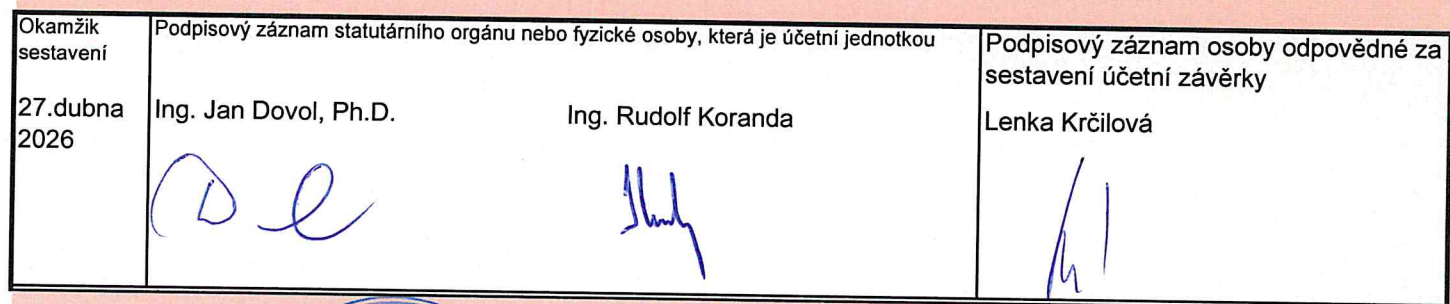 Okamžik
sestavení
Podpisový záznam statutárního orgánu nebo fyzické osoby, která je účetní jednotkou
Podpisový záznam osoby odpovědné za
sestavení účetní závěrky
27.dubna
2026
Ing. Jan Dovol, Ph.D.
Ing. Rudolf Koranda
Lenka Krčilová